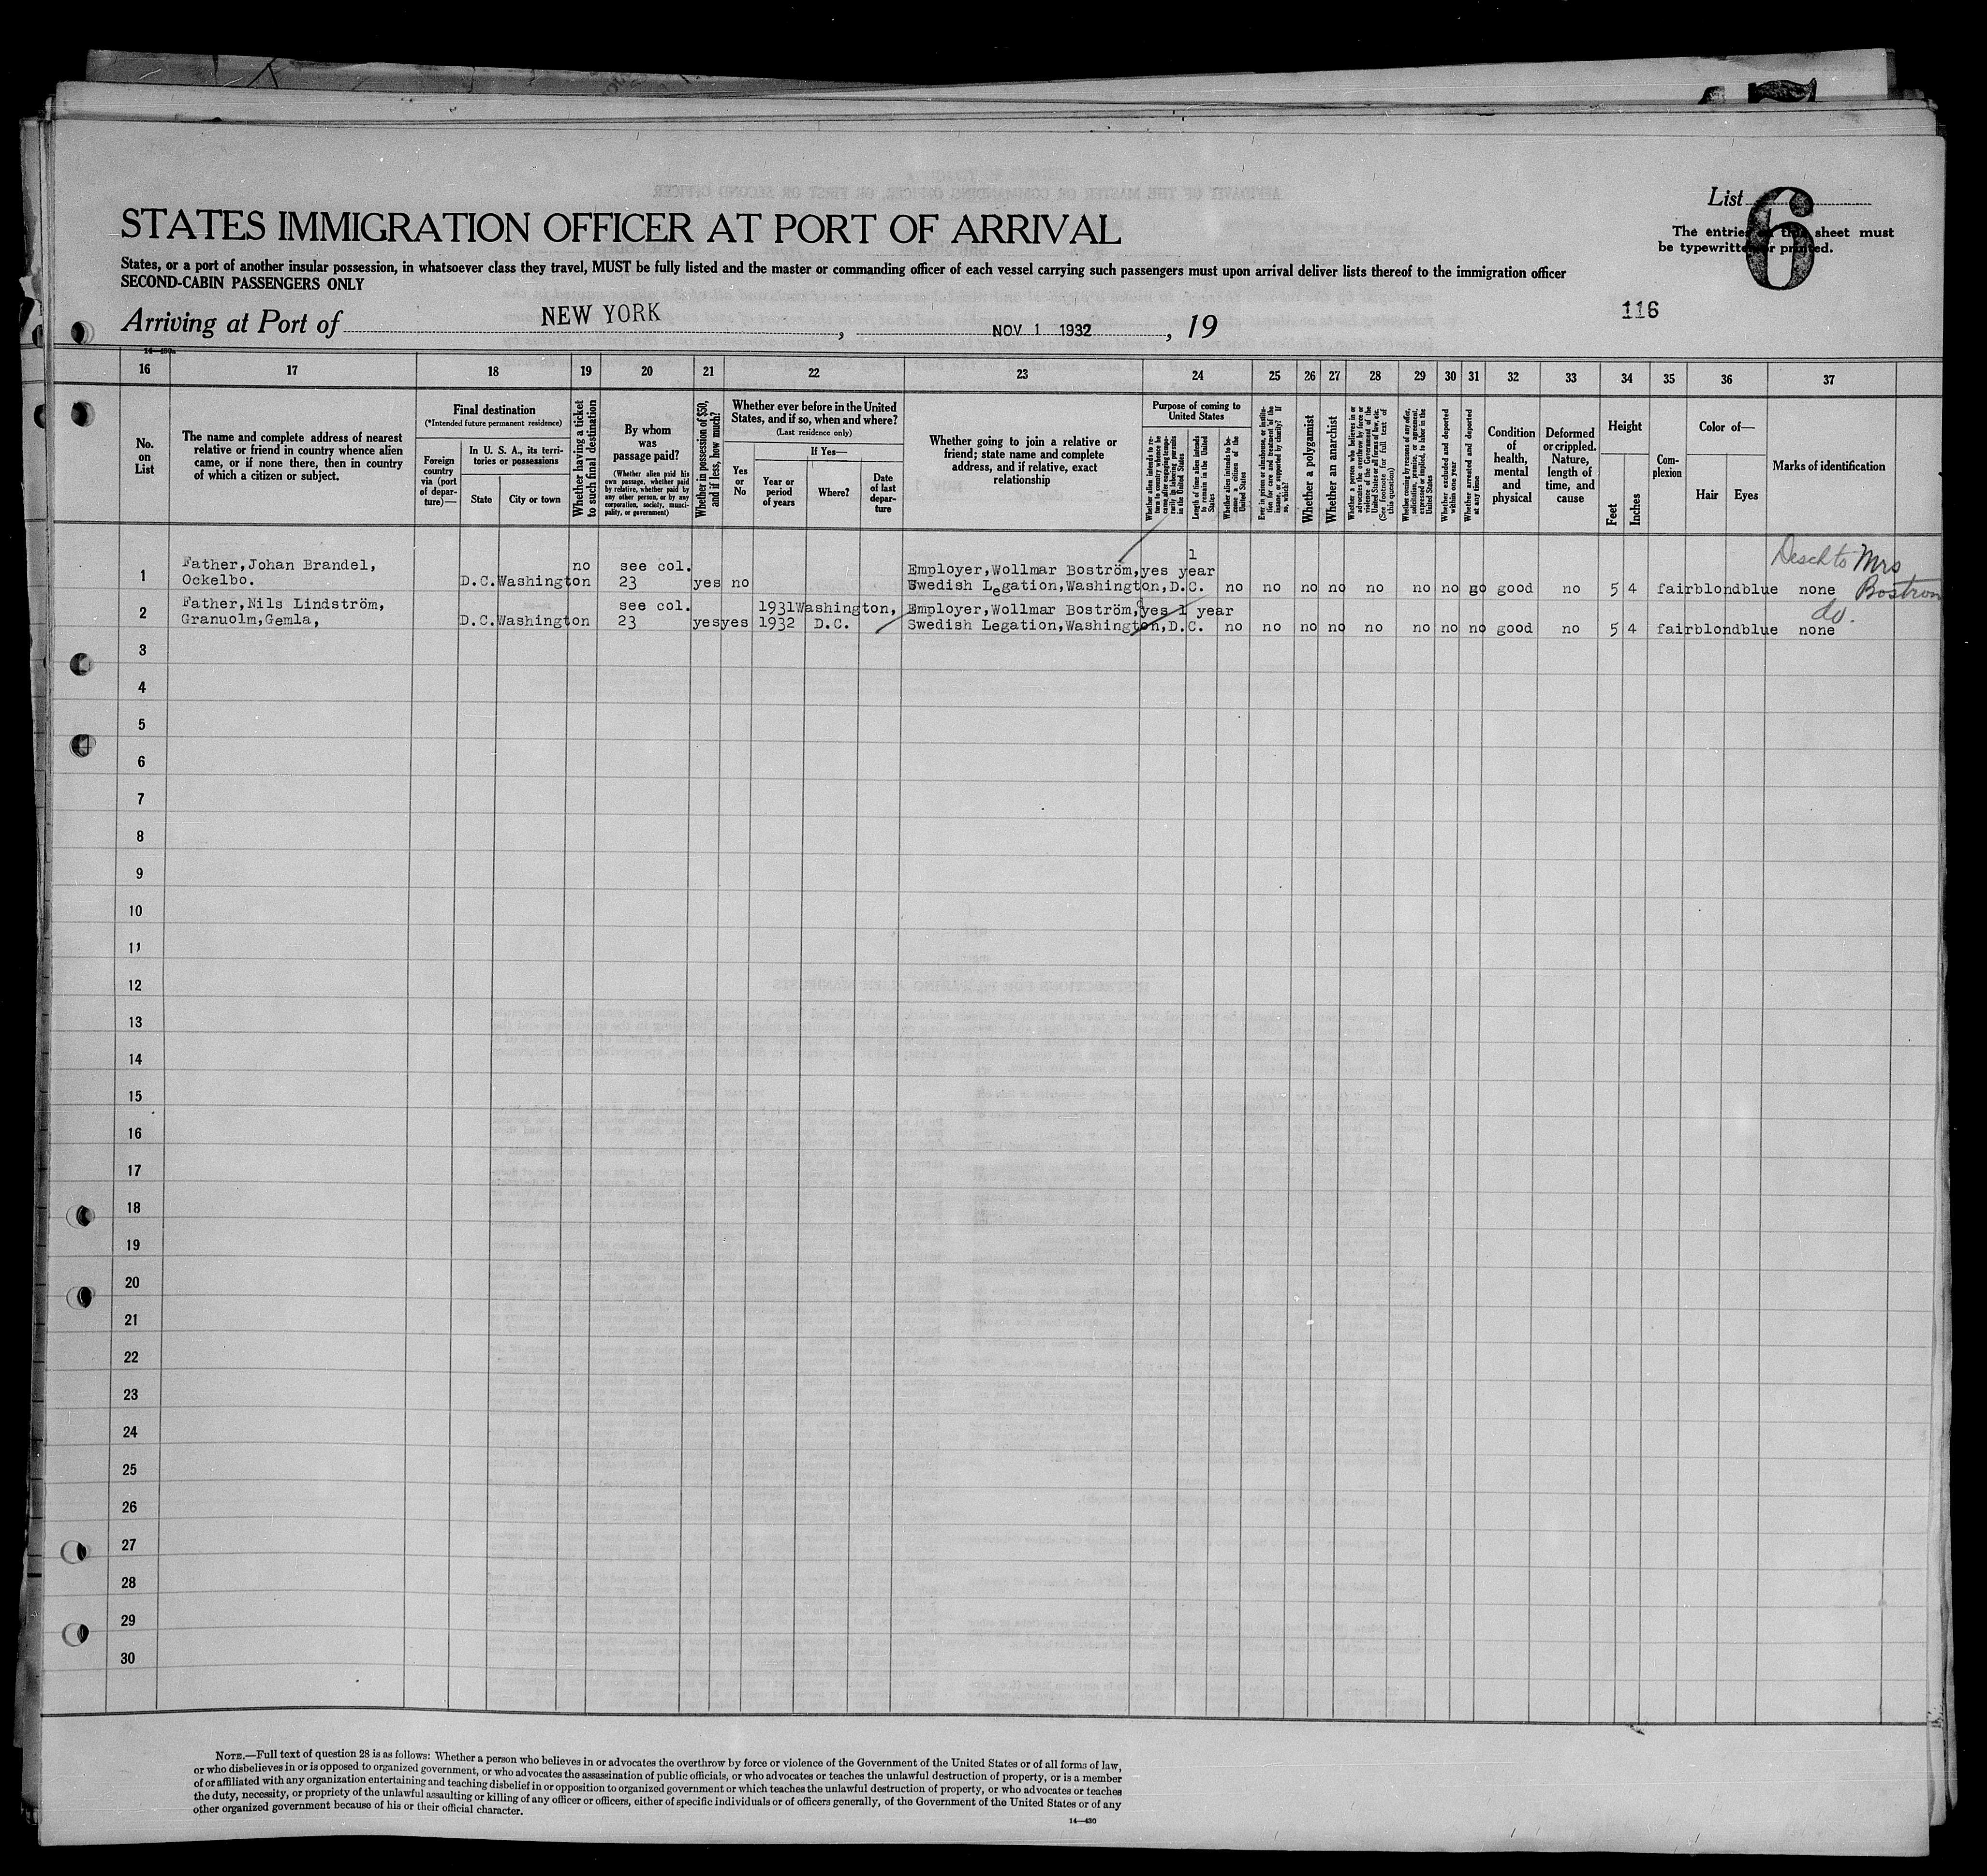 List 6
The entries on this sheet must
be typewritten or printed.
STATES IMMIGRATION OFFICER AT PORT OF ARRIVAL
States, or a port of another insular possession, in whatsoever class they travel, MUST be fully listed and the master or commanding officer of each vessel carrying such passengers must upon arrival deliver lists thereof to the immigration officer
SECOND-CABIN PASSENGERS ONLY
116
Arriving at Port of NEW YORK, NOV 1 1932, 19
16 17 18 19 20 21 22 23 24 25 26 27 28 29 30 31 32 33 34 35 36 37
No.
on
List
The name and complete address of nearest
relative or friend in country whence alien
came, or if none there, then in country
of which a citizen or subject.
Final destination
(*Intended future permanent residence)
Foreign
country
via (port
of depar-
ture)—
In U. S. A., its terri-
tories or possessions
State
City or town
Whether having a ticket
to such final destination
By whom
was
passage paid?
(Whether alien paid his
own passage, whether paid
by relative, whether paid by
any other person, or by any
corporation, society, munci-
pality, or government)
Whether in possession of $50,
and if less, how much?
Whether ever before in the United
States, and if so, when and where?
(Last residence only)
Yes
or
No
If Yes—
Year or
period
of years
Where?
Date
of last
depar-
ture
Whether going to join a relative or
friend; state name and complete
address, and if relative, exact
relationship
Purpose of coming to
United States
Whether alien intends to re-
turn to country whence he
came after engaging tempo-
rarily in laboring pursuits
in the United States
Length of time alien intends
to remain in the United
States
Whether alien intends to be-
come a citizen of the
United States
Ever in prison or almshouse, or institu-
tion for care and treatment of the
insane, or supported by charity? If
so, which?
Whether a polygamist
Whether an anarchist
Whether a person who believes in or
advocates the overthrow by force or
violence of the Government of the
United States or all forms of law, etc.
(See footnote for full text of
this question)
Whether coming by reasons of any offer,
solicitation, promise, or agreement,
expressed or implied, to labor in the
United States
Whether excluded and deported
within one year
Whether arrested and deported
at any time
Condition
of
health,
mental
and
physical
Deformed
or crippled.
Nature,
length of
time, and
cause
Height
Feet
Inches
Com-
plexion
Color of—
Hair
Eyes
Marks of identification
Desch to Mrs
Bostrom
1 Father,Johan Brandel, no see col. Employer,Wollmar Boström, yes 1 year
Ockelbo. D.C. Washington 23 yes no Swedish Legation,Washington,D.C. no no no no no no no go good no 5 4 fair blond blue none
do.
2 Father,Nils Lindström, see col. 1931 Washington, Employer,Wollmar Boström, yes 1 year
Granuolm,Gemla, D.C. Washington 23 yes yes 1932 D.C. Swedish Legation,Washington,D.C. no no no no no no no no good no 5 4 fair blond blue none
3
4
5
6
7
8
9
10
11
12
13
14
15
16
17
18
19
20
21
22
23
24
25
26
27
28
29
30
NOTE.—Full text of question 28 is as follows: Whether a person who believes in or advocates the overthrow by force or violence of the Government of the United States or of all forms of law,
or who disbelieves in or is opposed to organized government, or who advocates the assassination of public officials, or who advocates or teaches the unlawful destruction of property, or is a member
of or affiliated with any organization entertaining and teaching disbelief in or opposition to organized government or which teaches the unlawful destruction of property, or who advocates or teaches
the duty, necessity, or propriety of the unlawful assaulting or killing of any officer or officers, either of specific individuals or of officers generally, of the Government of the United States or of any
other organized government because of his or their official character.
14—430